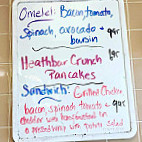 Omelet: Bacon, tomato,
Spinach, avocado +
boursin
Heathbar Crunch
Pancakes
Sandwich: Grilled Chicken,
bacon, spinach, tomato +
cheddar with
with potato salad